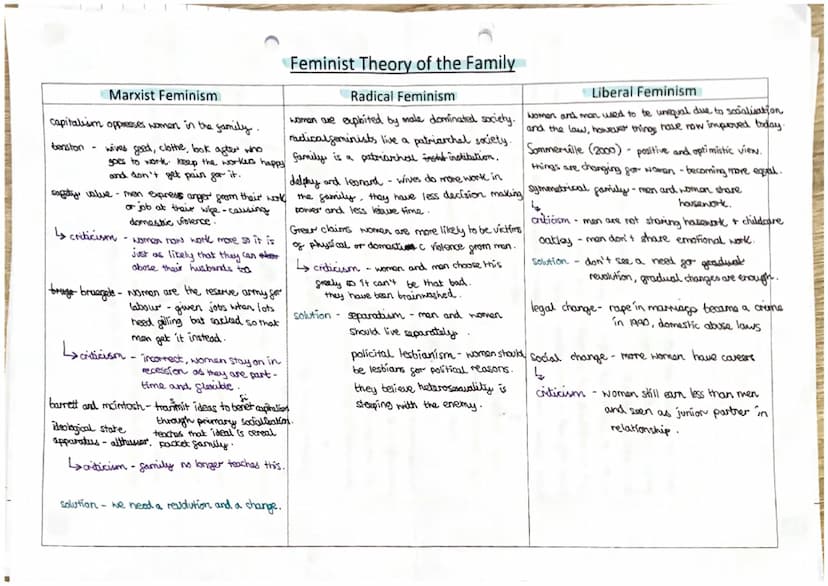 Feminist Theory of the Family
Marxist Feminism
capitalism oppresses women in the family.
benston - wives feed, clothe, look after who
goes to work. keep the workers happy
and don't get pain for it.
safety value - men express anger from their work
or job at their wife - causing
domestic violence.
↳ criticism - women now work more so it is
just as likely that they can
abuse their husbands to
bruegels - women are the reserve army for
labour - given jobs when lots
need filling but sacked so that
men get it instead.
↳ criticism - incorrect, women stay on in
recession as they are part-
time and flexible.
barrett and mcintosh - transmit ideas to benefit capitalism
through primary socialisation.
ideological state
apparatus - althusser. teaches that ideal is cereal
packet family.
↳ criticism - family no longer teaches this.
solution - we need a revolution and a change.
Radical Feminism
women are exploited by male dominated society.
radical feminists live a patriarchal society.
family is a patriarchal institution.
delphy and leonard - wives do more work in
the family, they have less decision making
power and less leisure time.
Greer claims women are more likely to be victims
of physical or domestic violence from men.
↳ criticism - women and men choose this
freely so it can't be that bad.
they have been brainwashed.
solution - separatism - men and women
should live separately.
policital lesbianism - women should
be lesbians for political reasons.
they believe heterosexuality is
sleeping with the enemy.
Liberal Feminism
women and men used to be unequal due to socialisation
and the law, however things have now improved today.
Sommerville (2000) - positive and optimistic view.
things are changing for women - becoming more equal.
symmetrical family - men and women share
housework.
↳
criticism - men are not sharing housework + childcare
oakley - men don't share emotional work.
solution - don't see a need for gradual
revolution, gradual changes are enough.
legal change - rape in marriage became a crime
in 1990, domestic abuse laws
social change - more women have careers
↳
criticism - women still earn less than men
and seen as junior partner in
relationship.